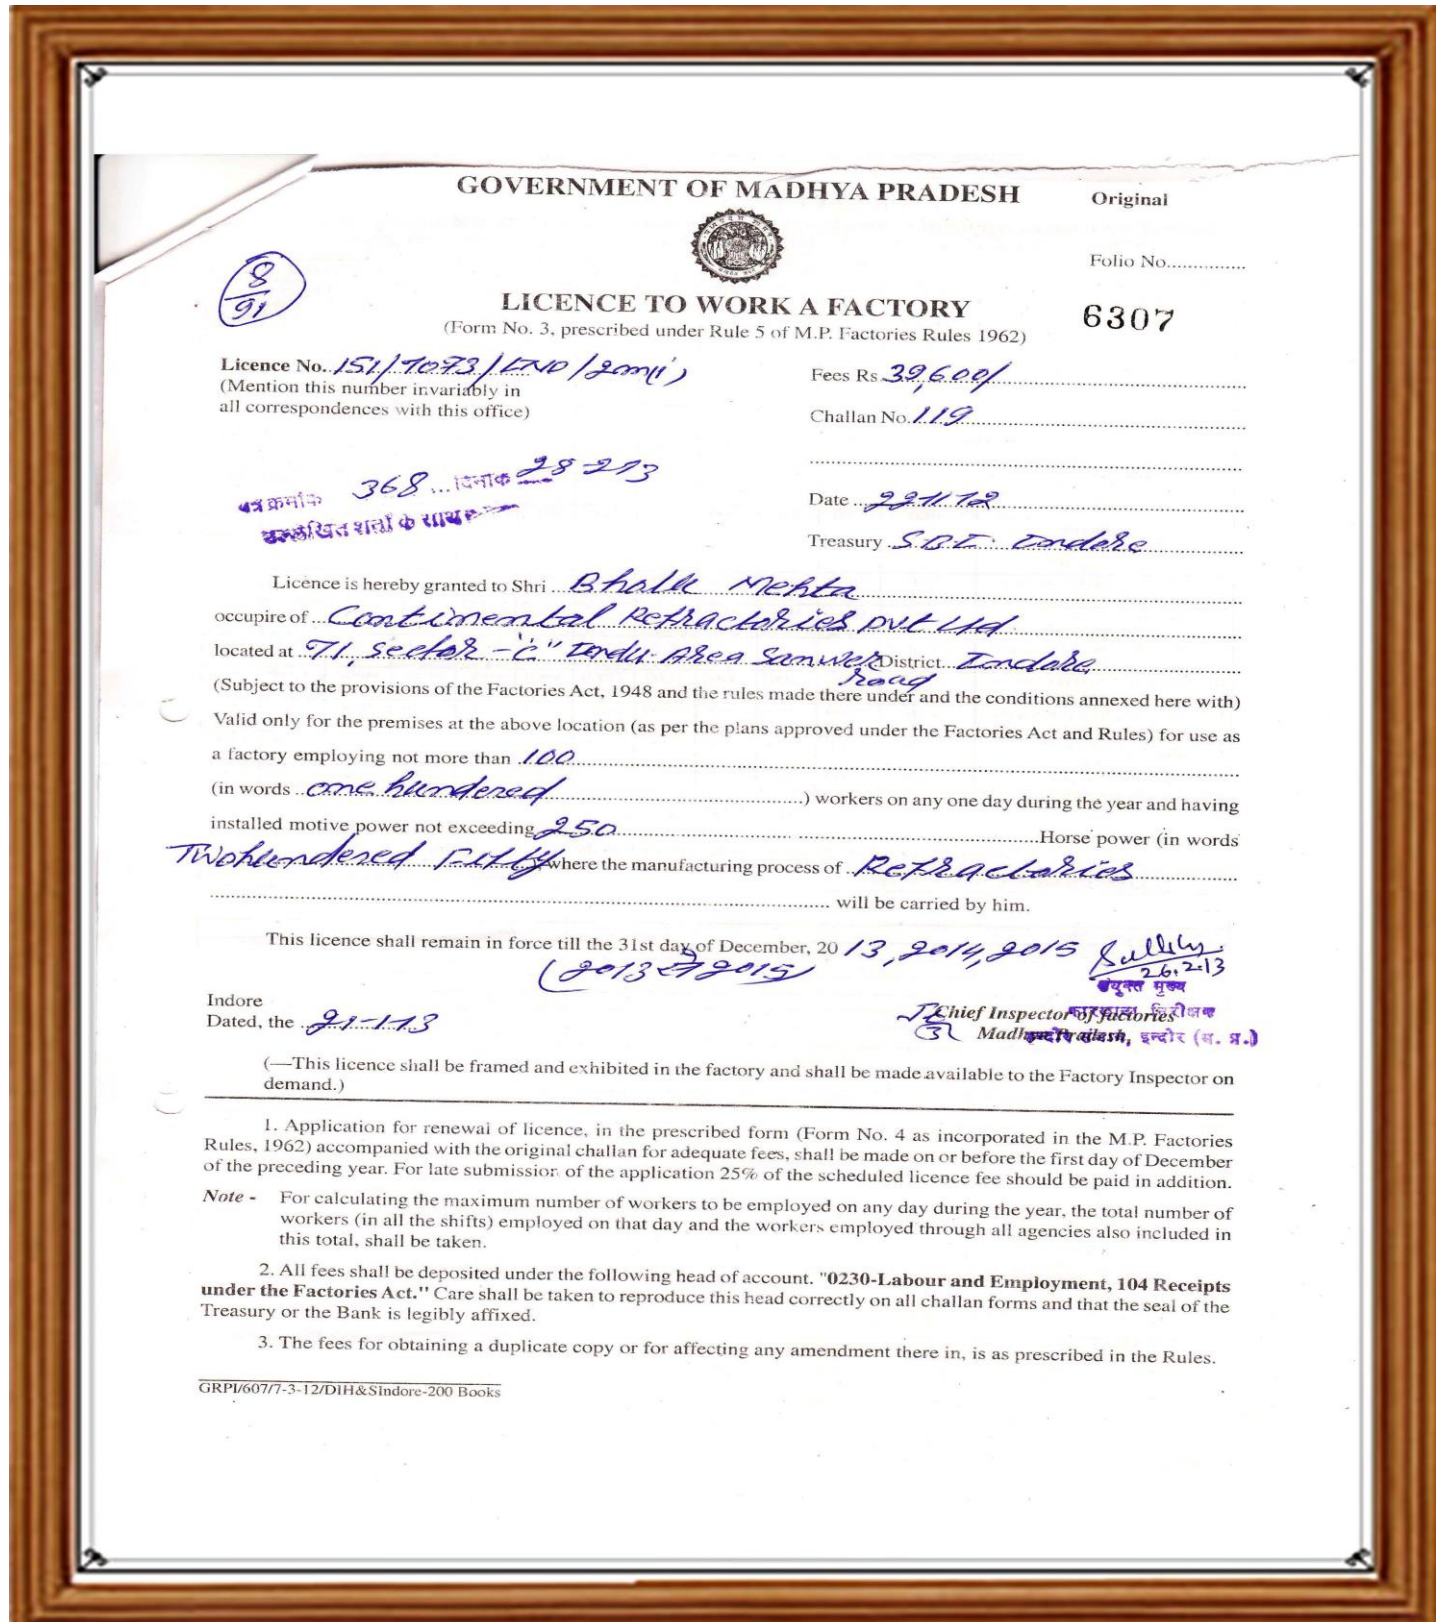 GOVERNMENT OF MADHYA PRADESH
Original
Folio No..............
8
91
LICENCE TO WORK A FACTORY
6307
(Form No. 3, prescribed under Rule 5 of M.P. Factories Rules 1962)
Licence No. 151/1073/IND/2m(i)
Fees Rs. 39,600/
(Mention this number invariably in
all correspondences with this office)
Challan No. 119
पत्र क्रमांक 368 ... दिनांक 28-2-13
उल्लेखित शर्तों के साथ
Date ... 22.11.12
Treasury . S.B.I. Indore
Licence is hereby granted to Shri ... Mehta
occupire of ... Continental Refractories pvt Ltd
located at 71, Sector - "C" Indu. Area Sanwer road District. Indore
(Subject to the provisions of the Factories Act, 1948 and the rules made there under and the conditions annexed here with)
Valid only for the premises at the above location (as per the plans approved under the Factories Act and Rules) for use as
a factory employing not more than 100
(in words .. one hundered ) workers on any one day during the year and having
installed motive power not exceeding 250 Horse power (in words
Twohundered Fifty where the manufacturing process of .. Refractories
will be carried by him.
This licence shall remain in force till the 31st day of December, 20 13, 2014, 2015
(2013 से 2015)
26.2.13
संयुक्त मुख्य
Indore
Dated, the .. 21-1-13
Chief Inspector of factories कारखाना निरीक्षक
Madhya Pradesh, इन्दौर (म. प्र.)
(—This licence shall be framed and exhibited in the factory and shall be made available to the Factory Inspector on
demand.)
1. Application for renewal of licence, in the prescribed form (Form No. 4 as incorporated in the M.P. Factories
Rules, 1962) accompanied with the original challan for adequate fees, shall be made on or before the first day of December
of the preceding year. For late submission of the application 25% of the scheduled licence fee should be paid in addition.
Note - For calculating the maximum number of workers to be employed on any day during the year, the total number of
workers (in all the shifts) employed on that day and the workers employed through all agencies also included in
this total, shall be taken.
2. All fees shall be deposited under the following head of account. "0230-Labour and Employment, 104 Receipts
under the Factories Act." Care shall be taken to reproduce this head correctly on all challan forms and that the seal of the
Treasury or the Bank is legibly affixed.
3. The fees for obtaining a duplicate copy or for affecting any amendment there in, is as prescribed in the Rules.
GRPI/607/7-3-12/DIH&SIndore-200 Books